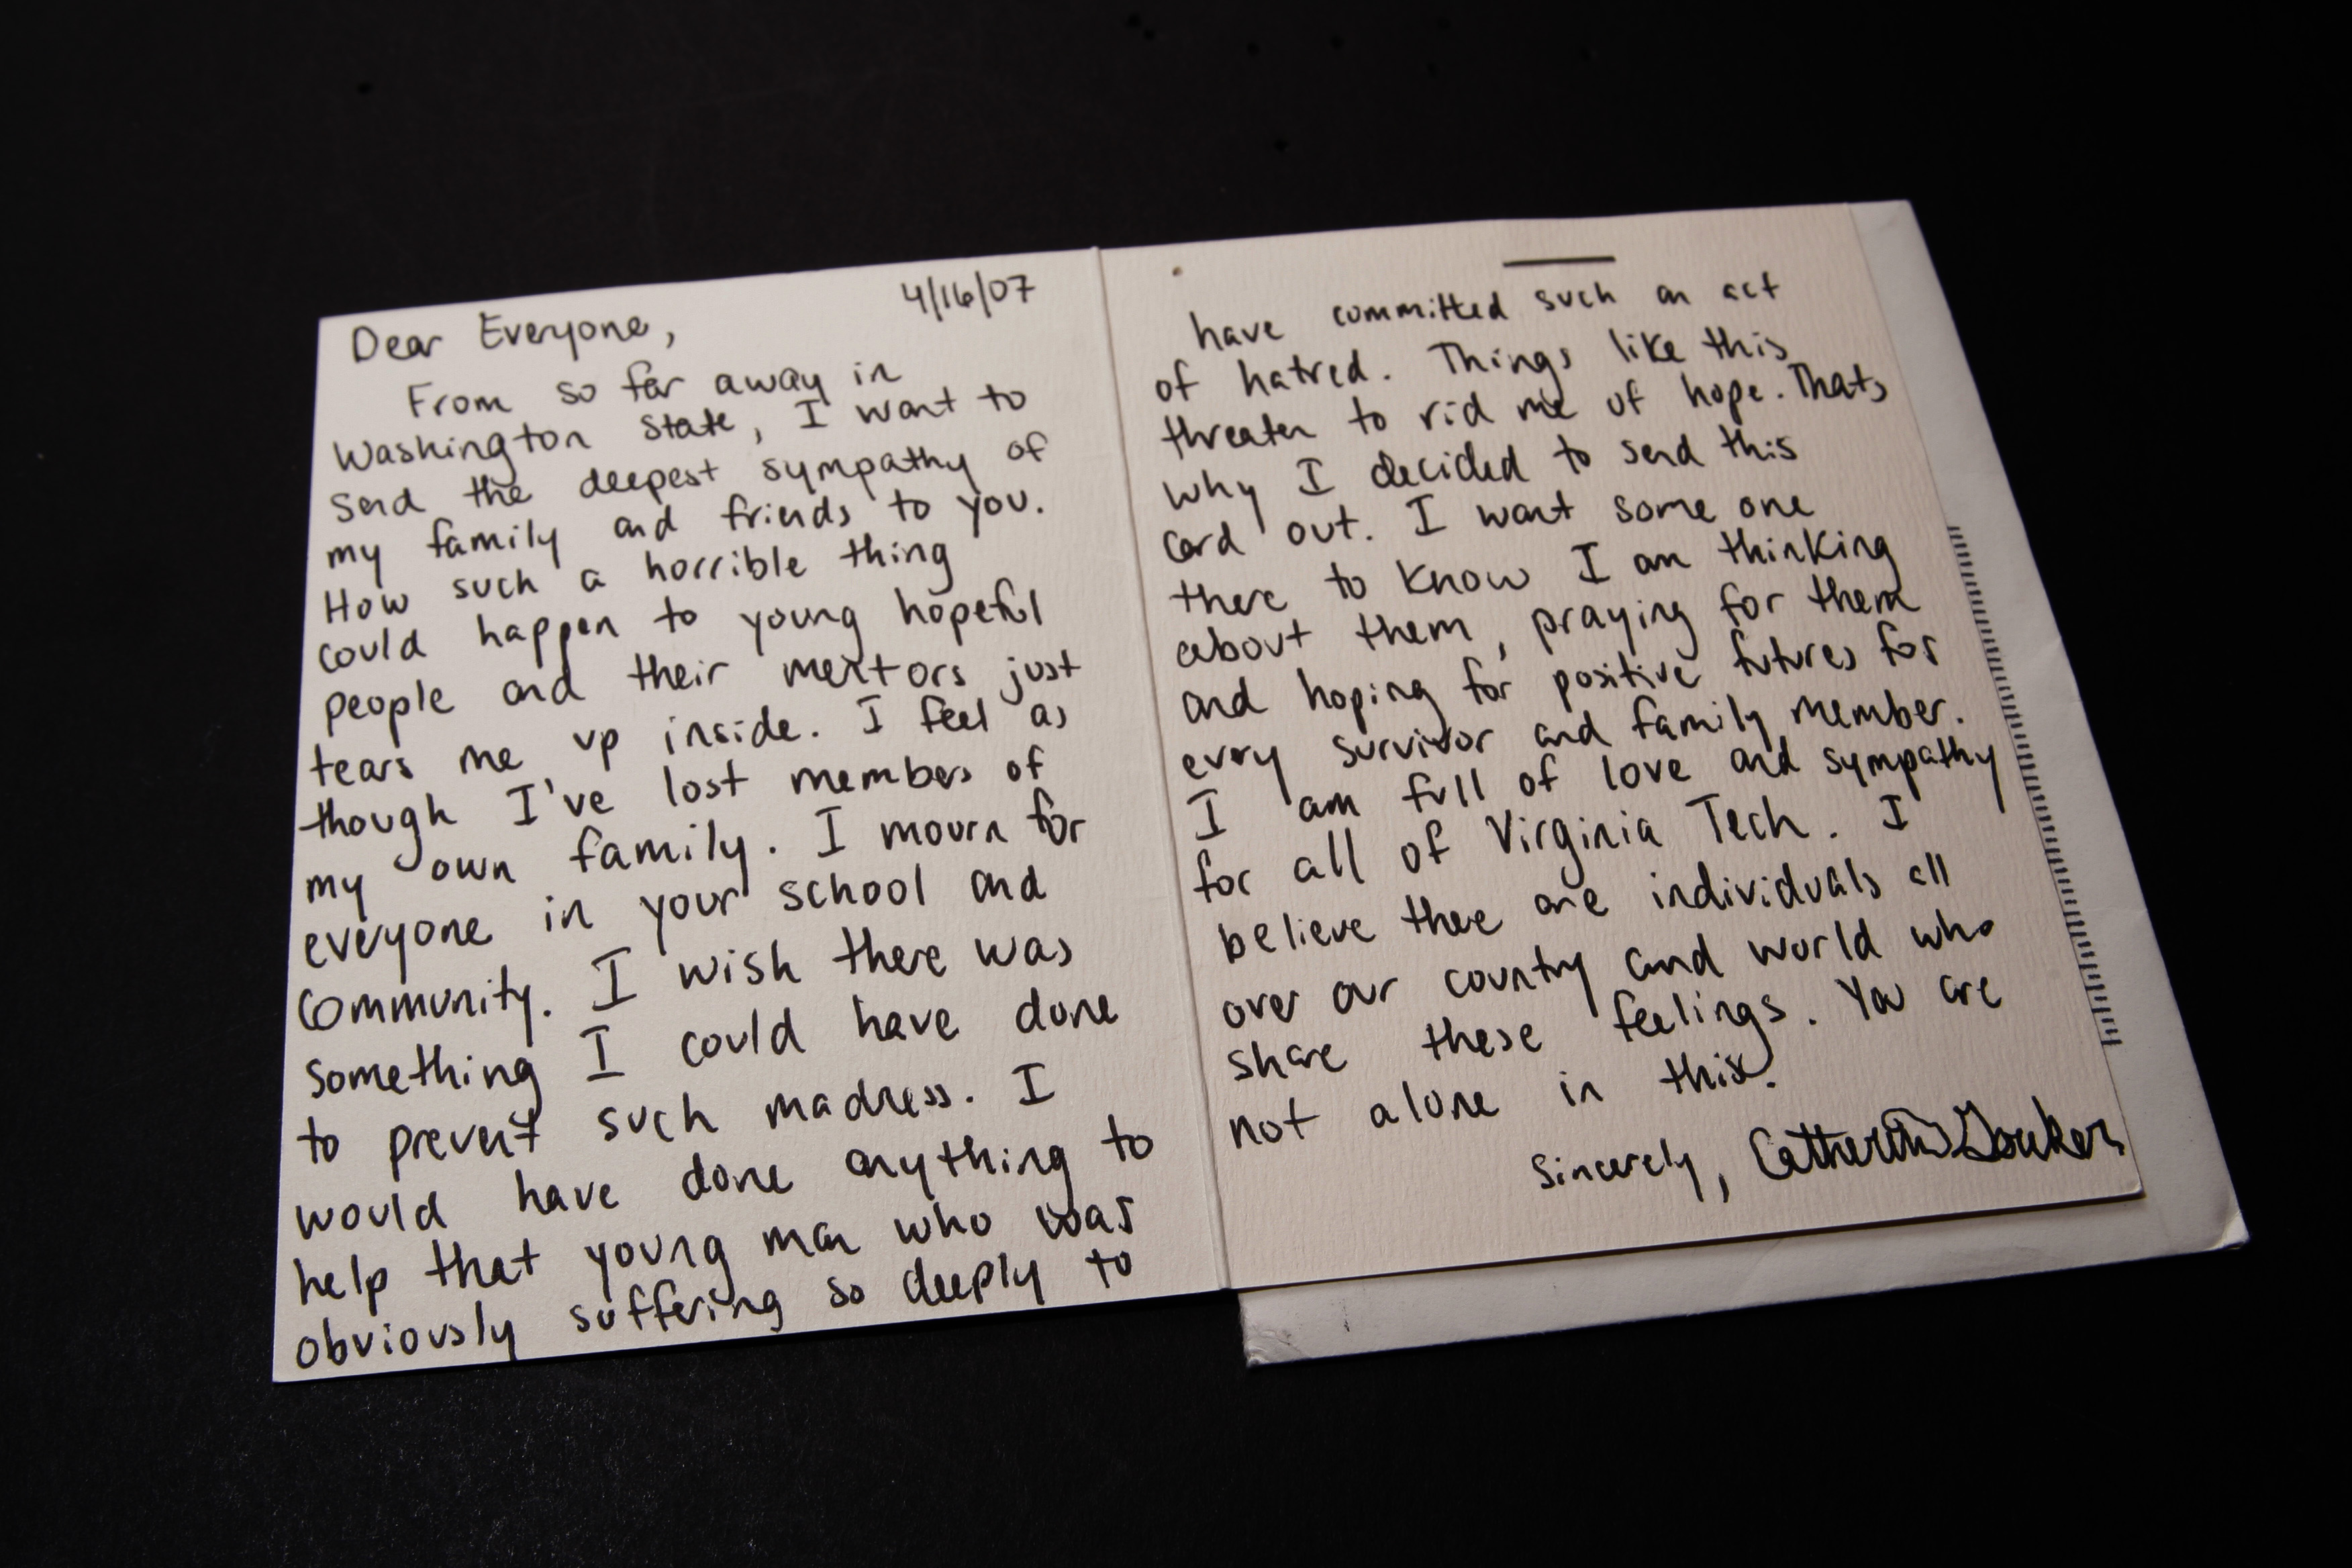 4/16/07
Dear Everyone,
From so far away in
Washington State, I want to
send the deepest sympathy of
my family and friends to you.
How such a horrible thing
could happen to young hopeful
people and their mentors just
tears me up inside. I feel as
though I've lost members of
my own family. I mourn for
everyone in your school and
community. I wish there was
something I could have done
to prevent such madness. I
would have done anything to
help that young man who was
obviously suffering so deeply to
have committed such an act
of hatred. Things like this
threaten to rid me of hope. Thats
why I decided to send this
card out. I want some one
there to know I am thinking
about them, praying for them
and hoping for positive futures for
every survivor and family member.
I am full of love and sympathy
for all of Virginia Tech. I
believe there are individuals all
over our country and world who
share these feelings. You are
not alone in this.
Sincerely,